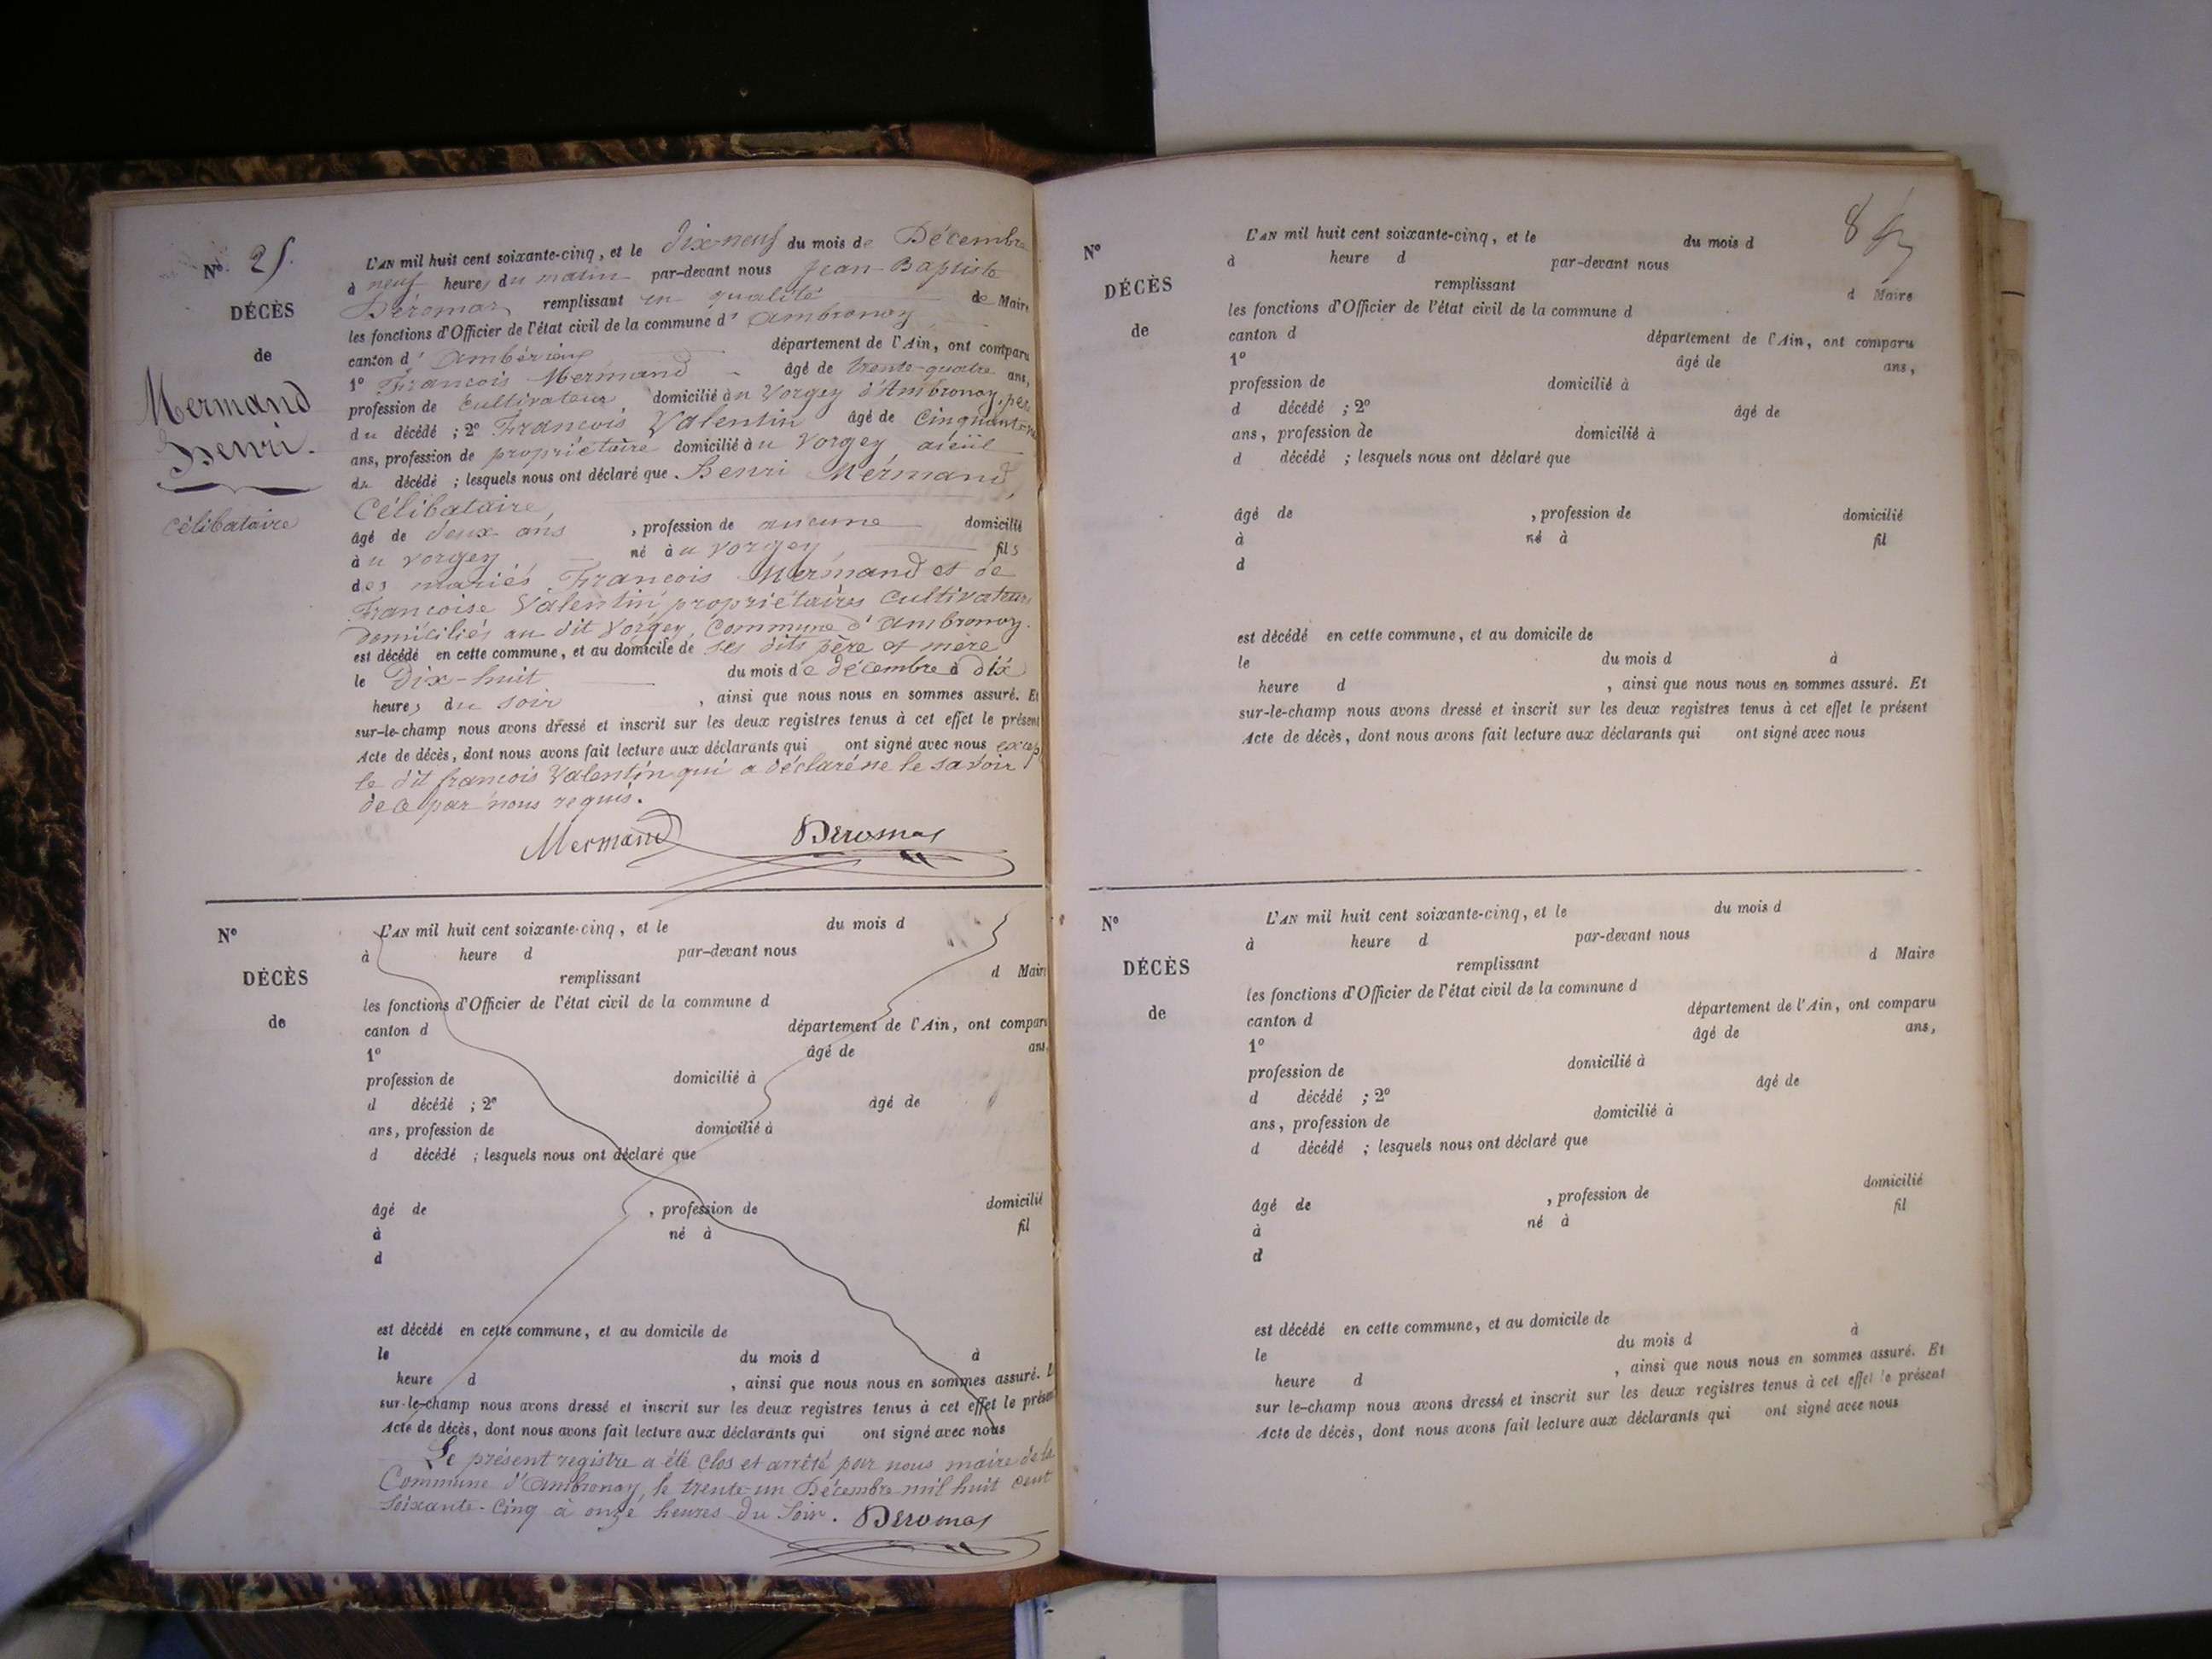 N° 25.
DÉCÈS
de
Mermand
Henri.
célibataire
L'AN mil huit cent soixante-cinq, et le Dix-neuf du mois de Décembre
à neuf heures du matin par-devant nous Jean-Baptiste
Déromas remplissant en qualité de Maire
les fonctions d'Officier de l'état civil de la commune d'Ambronay
canton d'Ambérieux département de l'Ain, ont comparu
1° François Mermand âgé de trente-quatre ans,
profession de cultivateur domicilié au Vorgey d'Ambronay, père
du décédé ; 2° François Valentin âgé de
ans, profession de propriétaire domicilié au Vorgey, aieül
du décédé ; lesquels nous ont déclaré que Henri Mermand,
Célibataire,
âgé de deux ans , profession de aucune domicilié
au vorgey né au vorgey fils
des mariés François Mermand et de
Françoise Valentin propriétaires cultivateurs
domiciliés au dit Vorgey, Commune d'Ambronay.
est décédé en cette commune, et au domicile de ses dits père et mère
le Dix-huit du mois de décembre à dix
heures du soir , ainsi que nous nous en sommes assuré. Et
sur-le-champ nous avons dressé et inscrit sur les deux registres tenus à cet effet le présent
Acte de décès, dont nous avons fait lecture aux déclarants qui ont signé avec nous excep
le dit françois Valentin qui a déclaré ne le savoir
de ce par nous requis.
Mermand Deromas
N°
DÉCÈS
de
L'AN mil huit cent soixante-cinq, et le du mois d
à heure d par-devant nous
remplissant d Maire
les fonctions d'Officier de l'état civil de la commune d
canton d département de l'Ain, ont comparu
1° âgé de ans,
profession de domicilié à
d décédé ; 2° âgé de
ans, profession de domicilié à
d décédé ; lesquels nous ont déclaré que
âgé de , profession de domicilié
à né à fil
d
est décédé en cette commune, et au domicile de
le du mois d à
heure d , ainsi que nous nous en sommes assuré. E
sur-le-champ nous avons dressé et inscrit sur les deux registres tenus à cet effet le présent
Acte de décès, dont nous avons fait lecture aux déclarants qui ont signé avec nous
Le présent registre a été clos et arrêté par nous maire de la
Commune d'Ambronay, le trente-un Décembre mil huit cent
Soixante-Cinq à onze heures du Soir. Deromas
8
N°
DÉCÈS
de
L'AN mil huit cent soixante-cinq, et le du mois d
à heure d par-devant nous
remplissant d Maire
les fonctions d'Officier de l'état civil de la commune d
canton d département de l'Ain, ont comparu
1° âgé de ans,
profession de domicilié à
d décédé ; 2° âgé de
ans, profession de domicilié à
d décédé ; lesquels nous ont déclaré que
âgé de , profession de domicilié
à né à fil
d
est décédé en cette commune, et au domicile de
le du mois d à
heure d , ainsi que nous nous en sommes assuré. Et
sur-le-champ nous avons dressé et inscrit sur les deux registres tenus à cet effet le présent
Acte de décès, dont nous avons fait lecture aux déclarants qui ont signé avec nous
N°
DÉCÈS
de
L'AN mil huit cent soixante-cinq, et le du mois d
à heure d par-devant nous
remplissant d Maire
les fonctions d'Officier de l'état civil de la commune d
canton d département de l'Ain, ont comparu
1° âgé de ans,
profession de domicilié à
d décédé ; 2° âgé de
ans, profession de domicilié à
d décédé ; lesquels nous ont déclaré que
âgé de , profession de domicilié
à né à fil
d
est décédé en cette commune, et au domicile de
le du mois d à
heure d , ainsi que nous nous en sommes assuré. Et
sur le-champ nous avons dressé et inscrit sur les deux registres tenus à cet effet le présent
Acte de décès, dont nous avons fait lecture aux déclarants qui ont signé avec nous